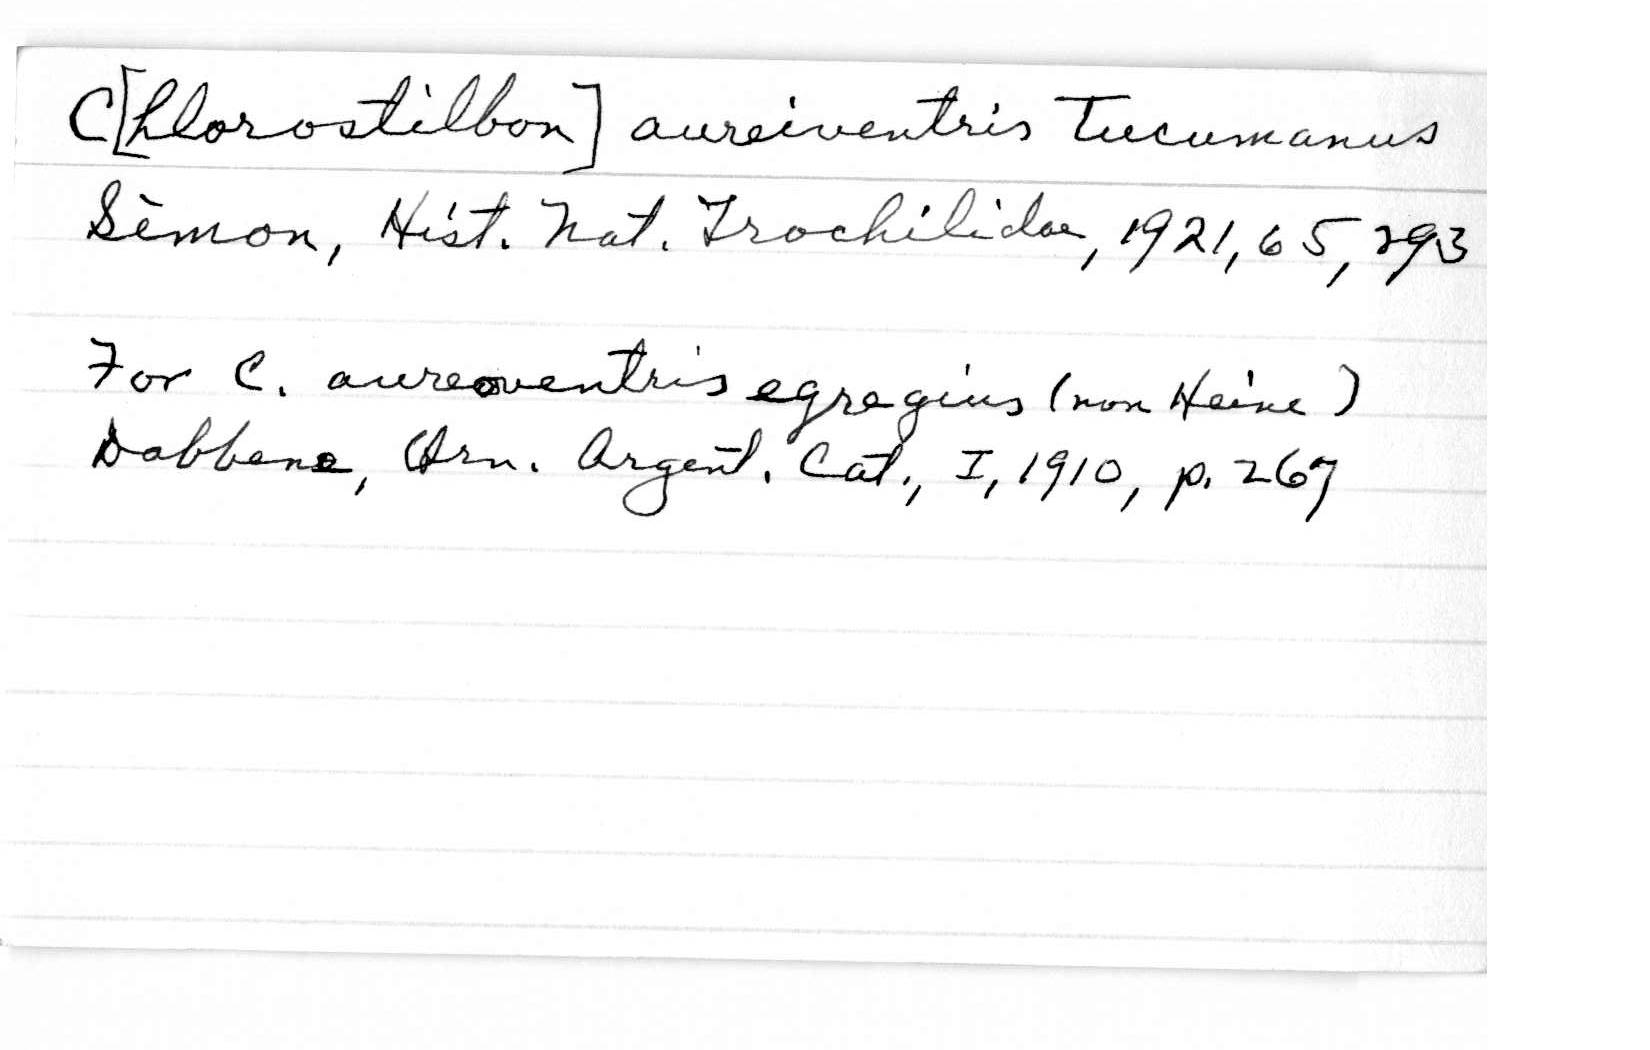 C[hlorostilbon] aureiventris Tucumanus
Simon, Hist. Nat. Trochilidae, 1921, 65, 293
For C. aureoventris egregius (non Heine)
Dabbene, Orn. Argent. Cat., I, 1910, p. 267